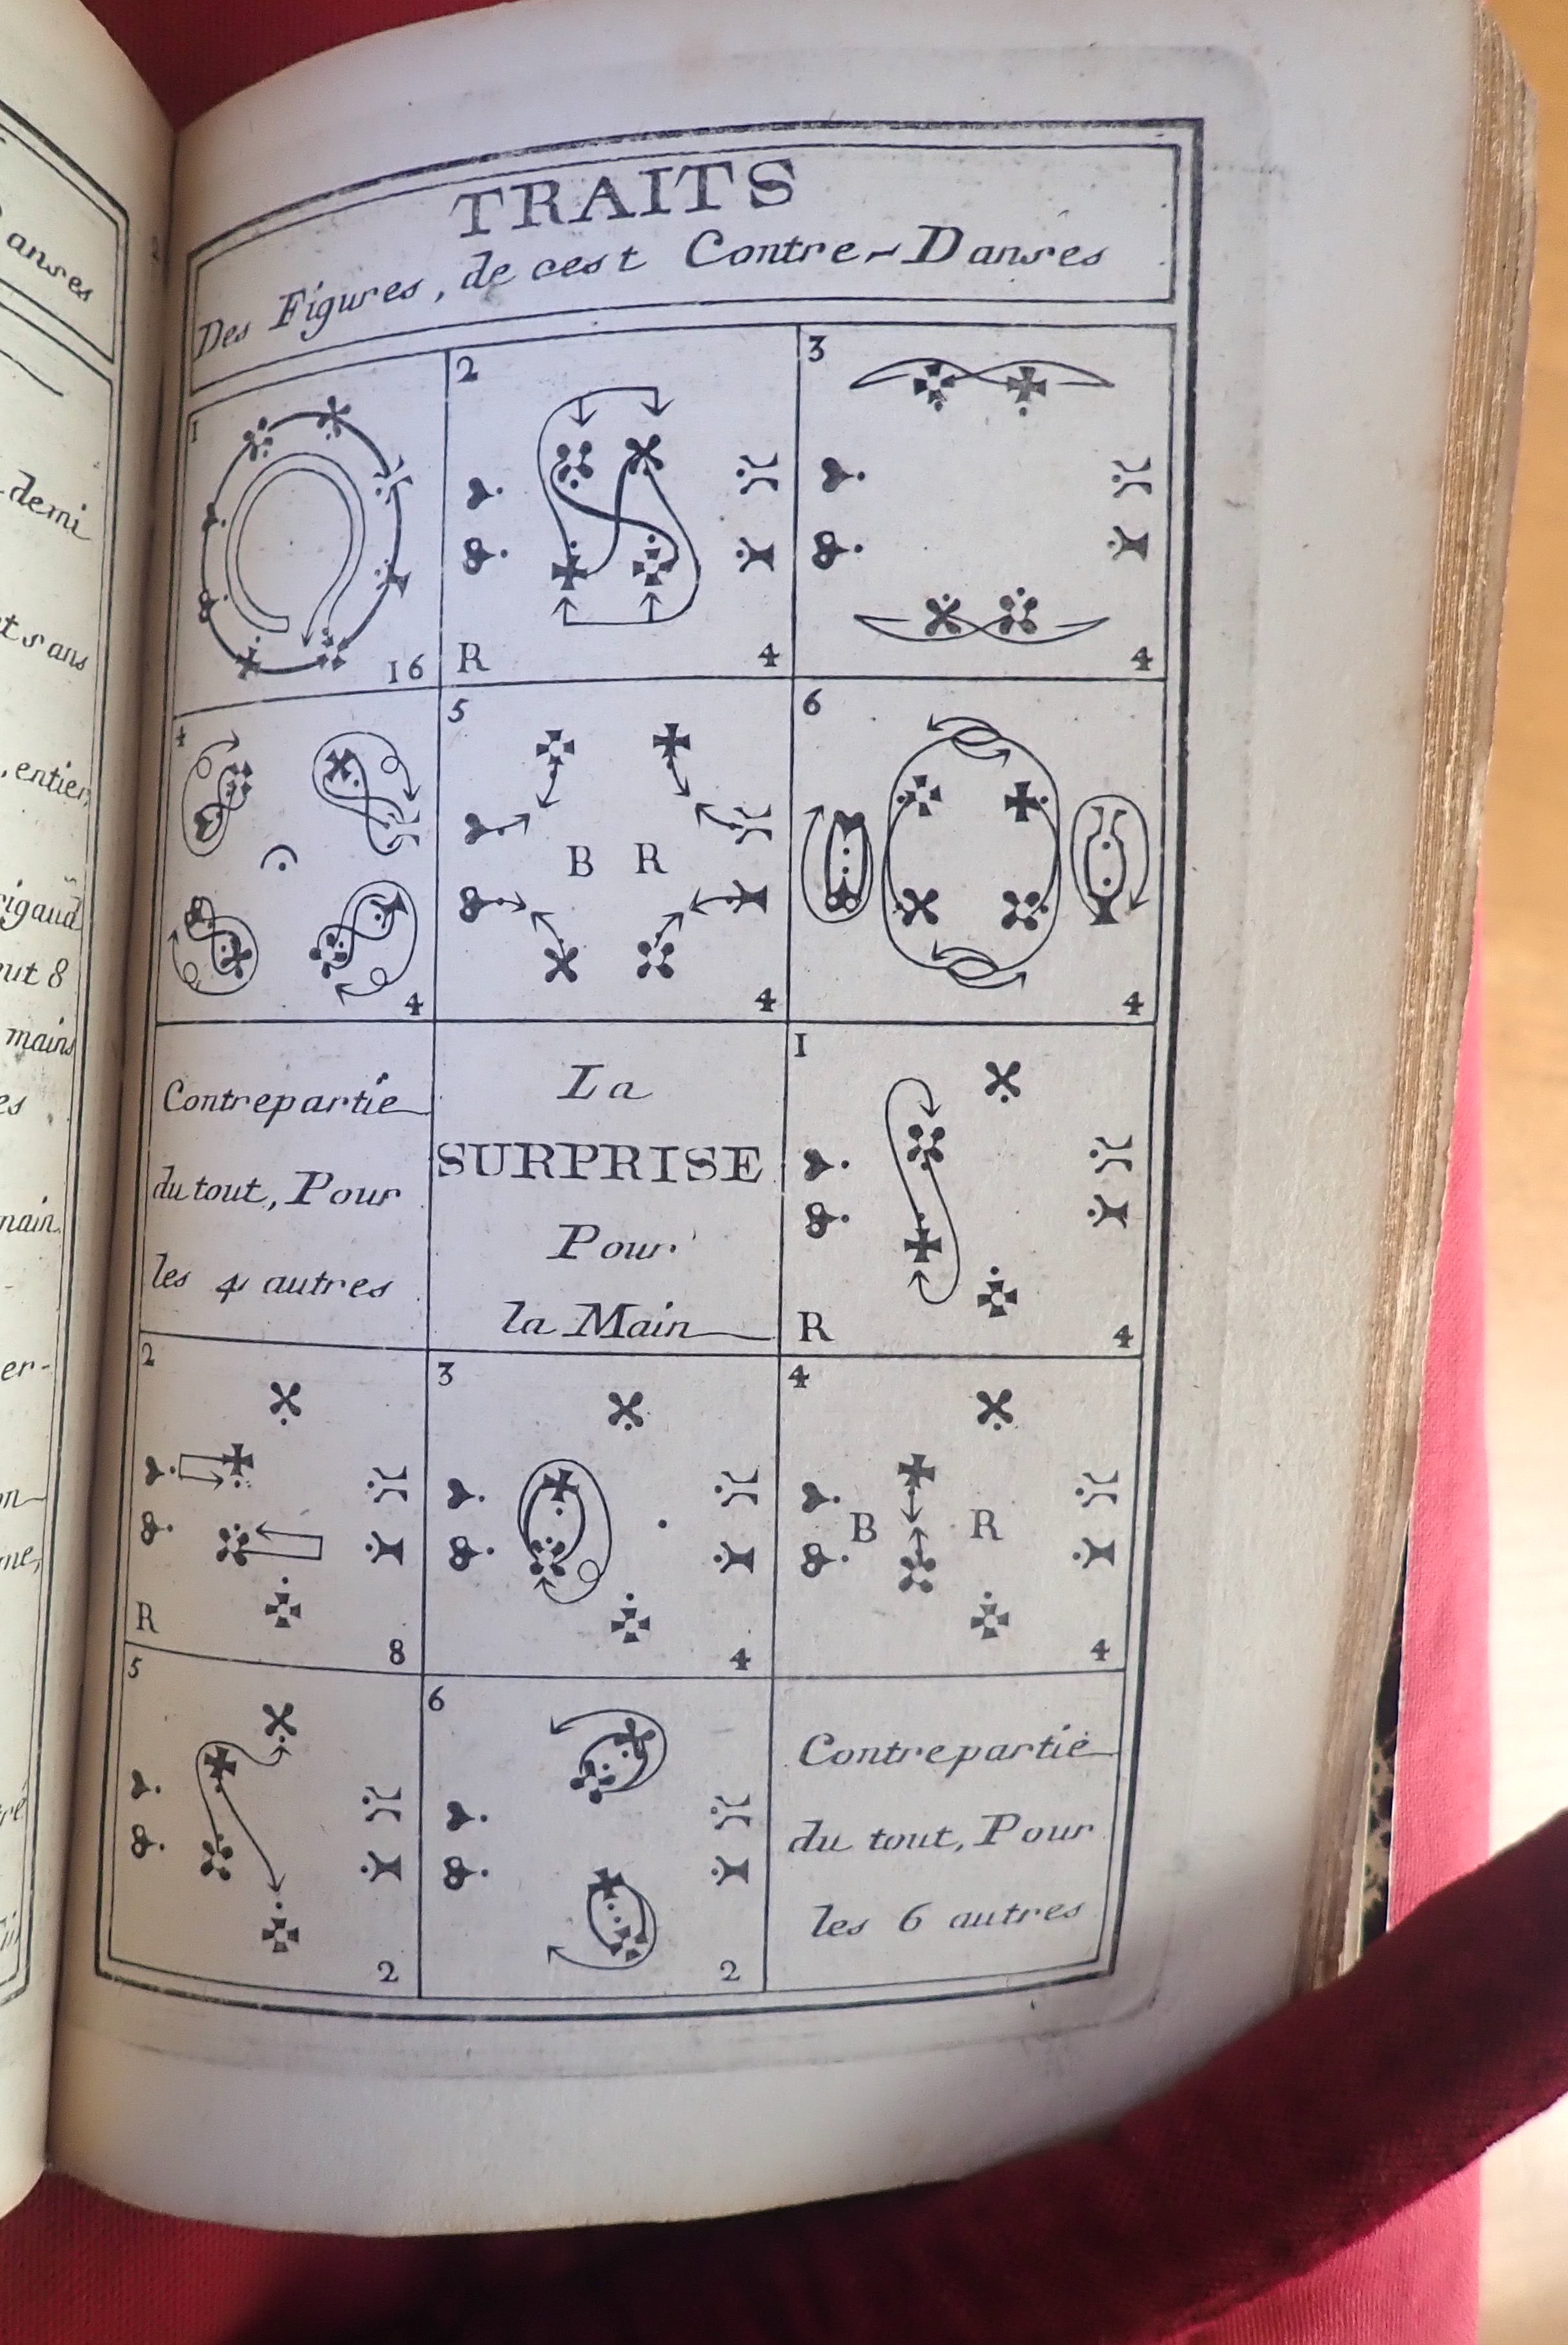 anses
demi
ts ans
, entier
rigaud
ut 8
mains
es
main.
er-
on
me,
TRAITS
Des Figures, de cest Contre-Danses
1
16
2
R
4
3
4
4
4
5
B R
4
6
4
Contrepartie
du tout, Pour
les 4 autres
La
SURPRISE
Pour
la Main
1
R
4
2
R
8
3
4
4
B R
4
5
2
6
2
Contrepartie
du tout, Pour
les 6 autres